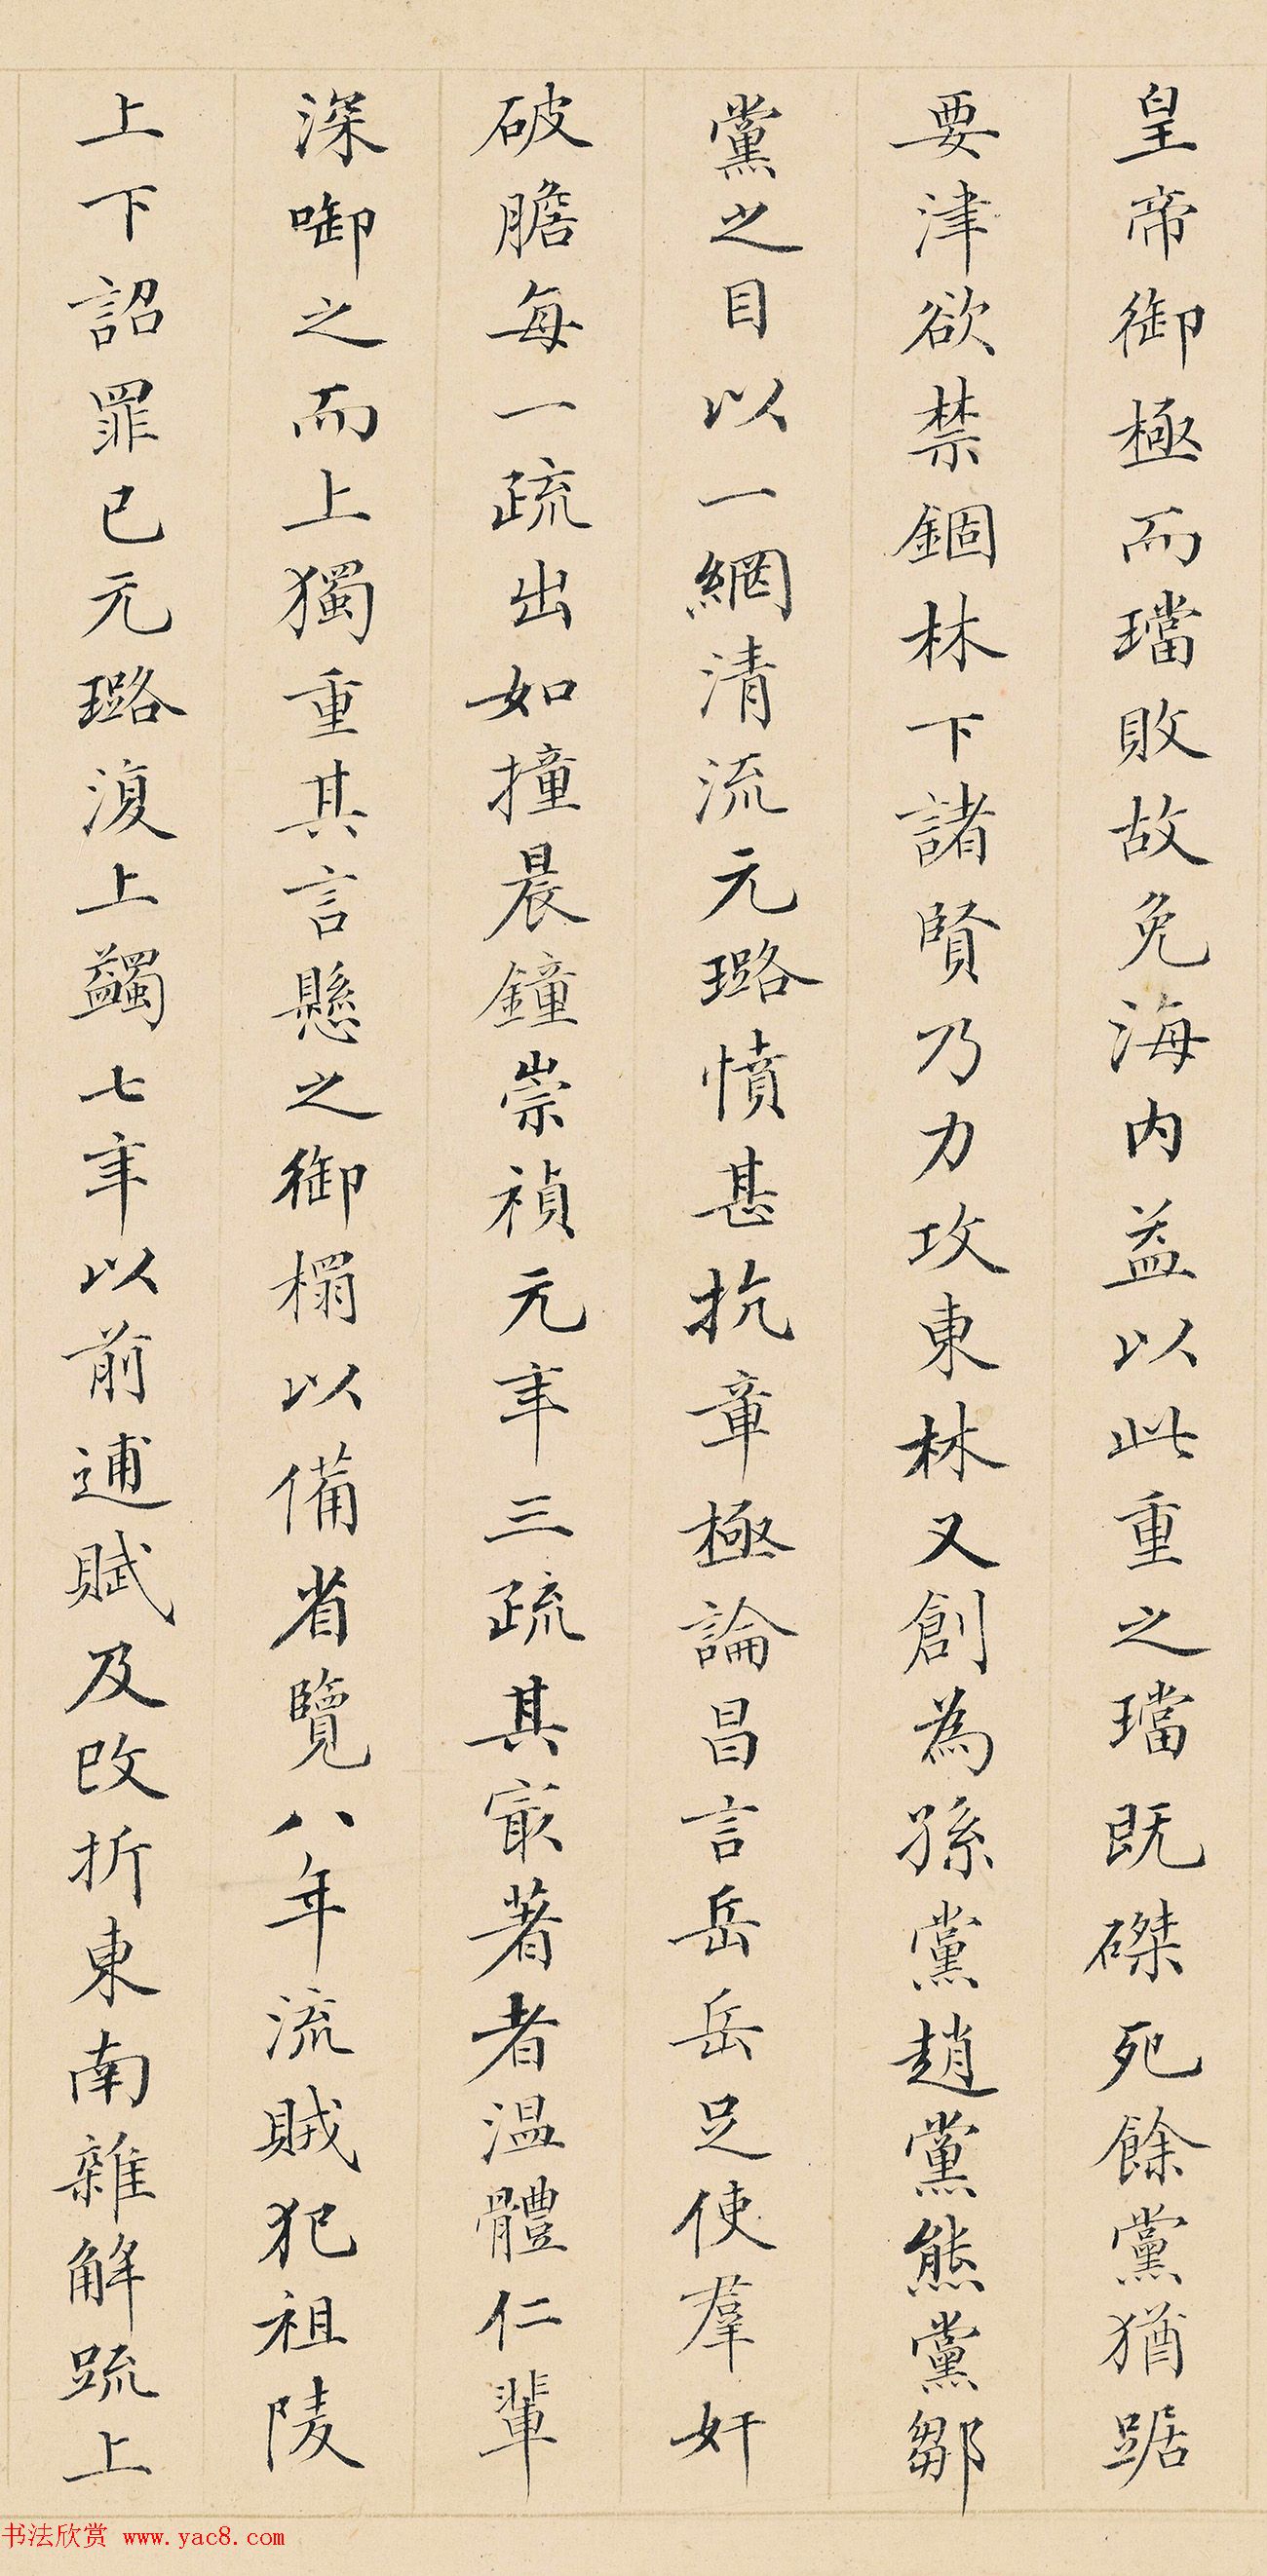 皇帝御極而璫敗故免海内益以此重之璫既磔死餘黨猶踞
要津欲禁錮林下諸賢乃力攻東林又創為孫黨趙黨熊黨鄒
黨之目以一網清流元璐憤甚抗章極論昌言岳岳足使羣奸
破膽每一疏出如撞晨鐘崇禎元年三疏其最著者溫體仁輩
深啣之而上獨重其言懸之御榻以備省覽八年流賊犯祖陵
上下詔罪已元璐復上蠲七年以前逋賦及改折東南雜解疏上
书法欣赏 www.yac8.com